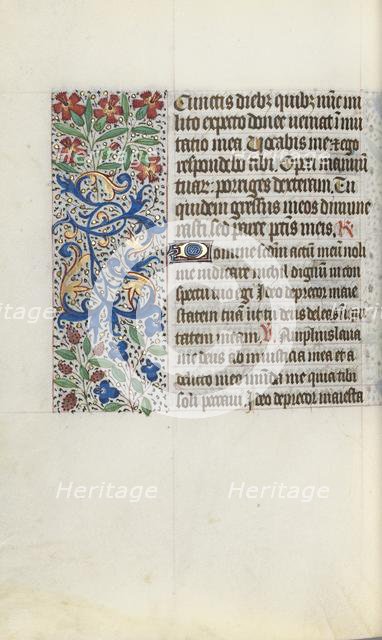 Cunctis diebz quibz nunc mi
lito expecto donec veniat inmu
tatio mea Vocabis me et ego
respondebo tibi. Operi manuum
tuarz porriges dexteram. Tu
quidem gressus meos dinume
rasti sed parce pctis meis. R
Domine secundum actum meum noli
me iudicare nichil dignum in con
spectu tuo egi Ideo deprecor maie
statem tuam ut tu deus deleas iniqui
tatem meam. V Amplius laua
me deus ab iniusticia mea et a
delicto meo munda me quia tibi
soli peccaui. Ideo deprecor maiesta
Heritage Heritage Heritage
Heritage Heritage